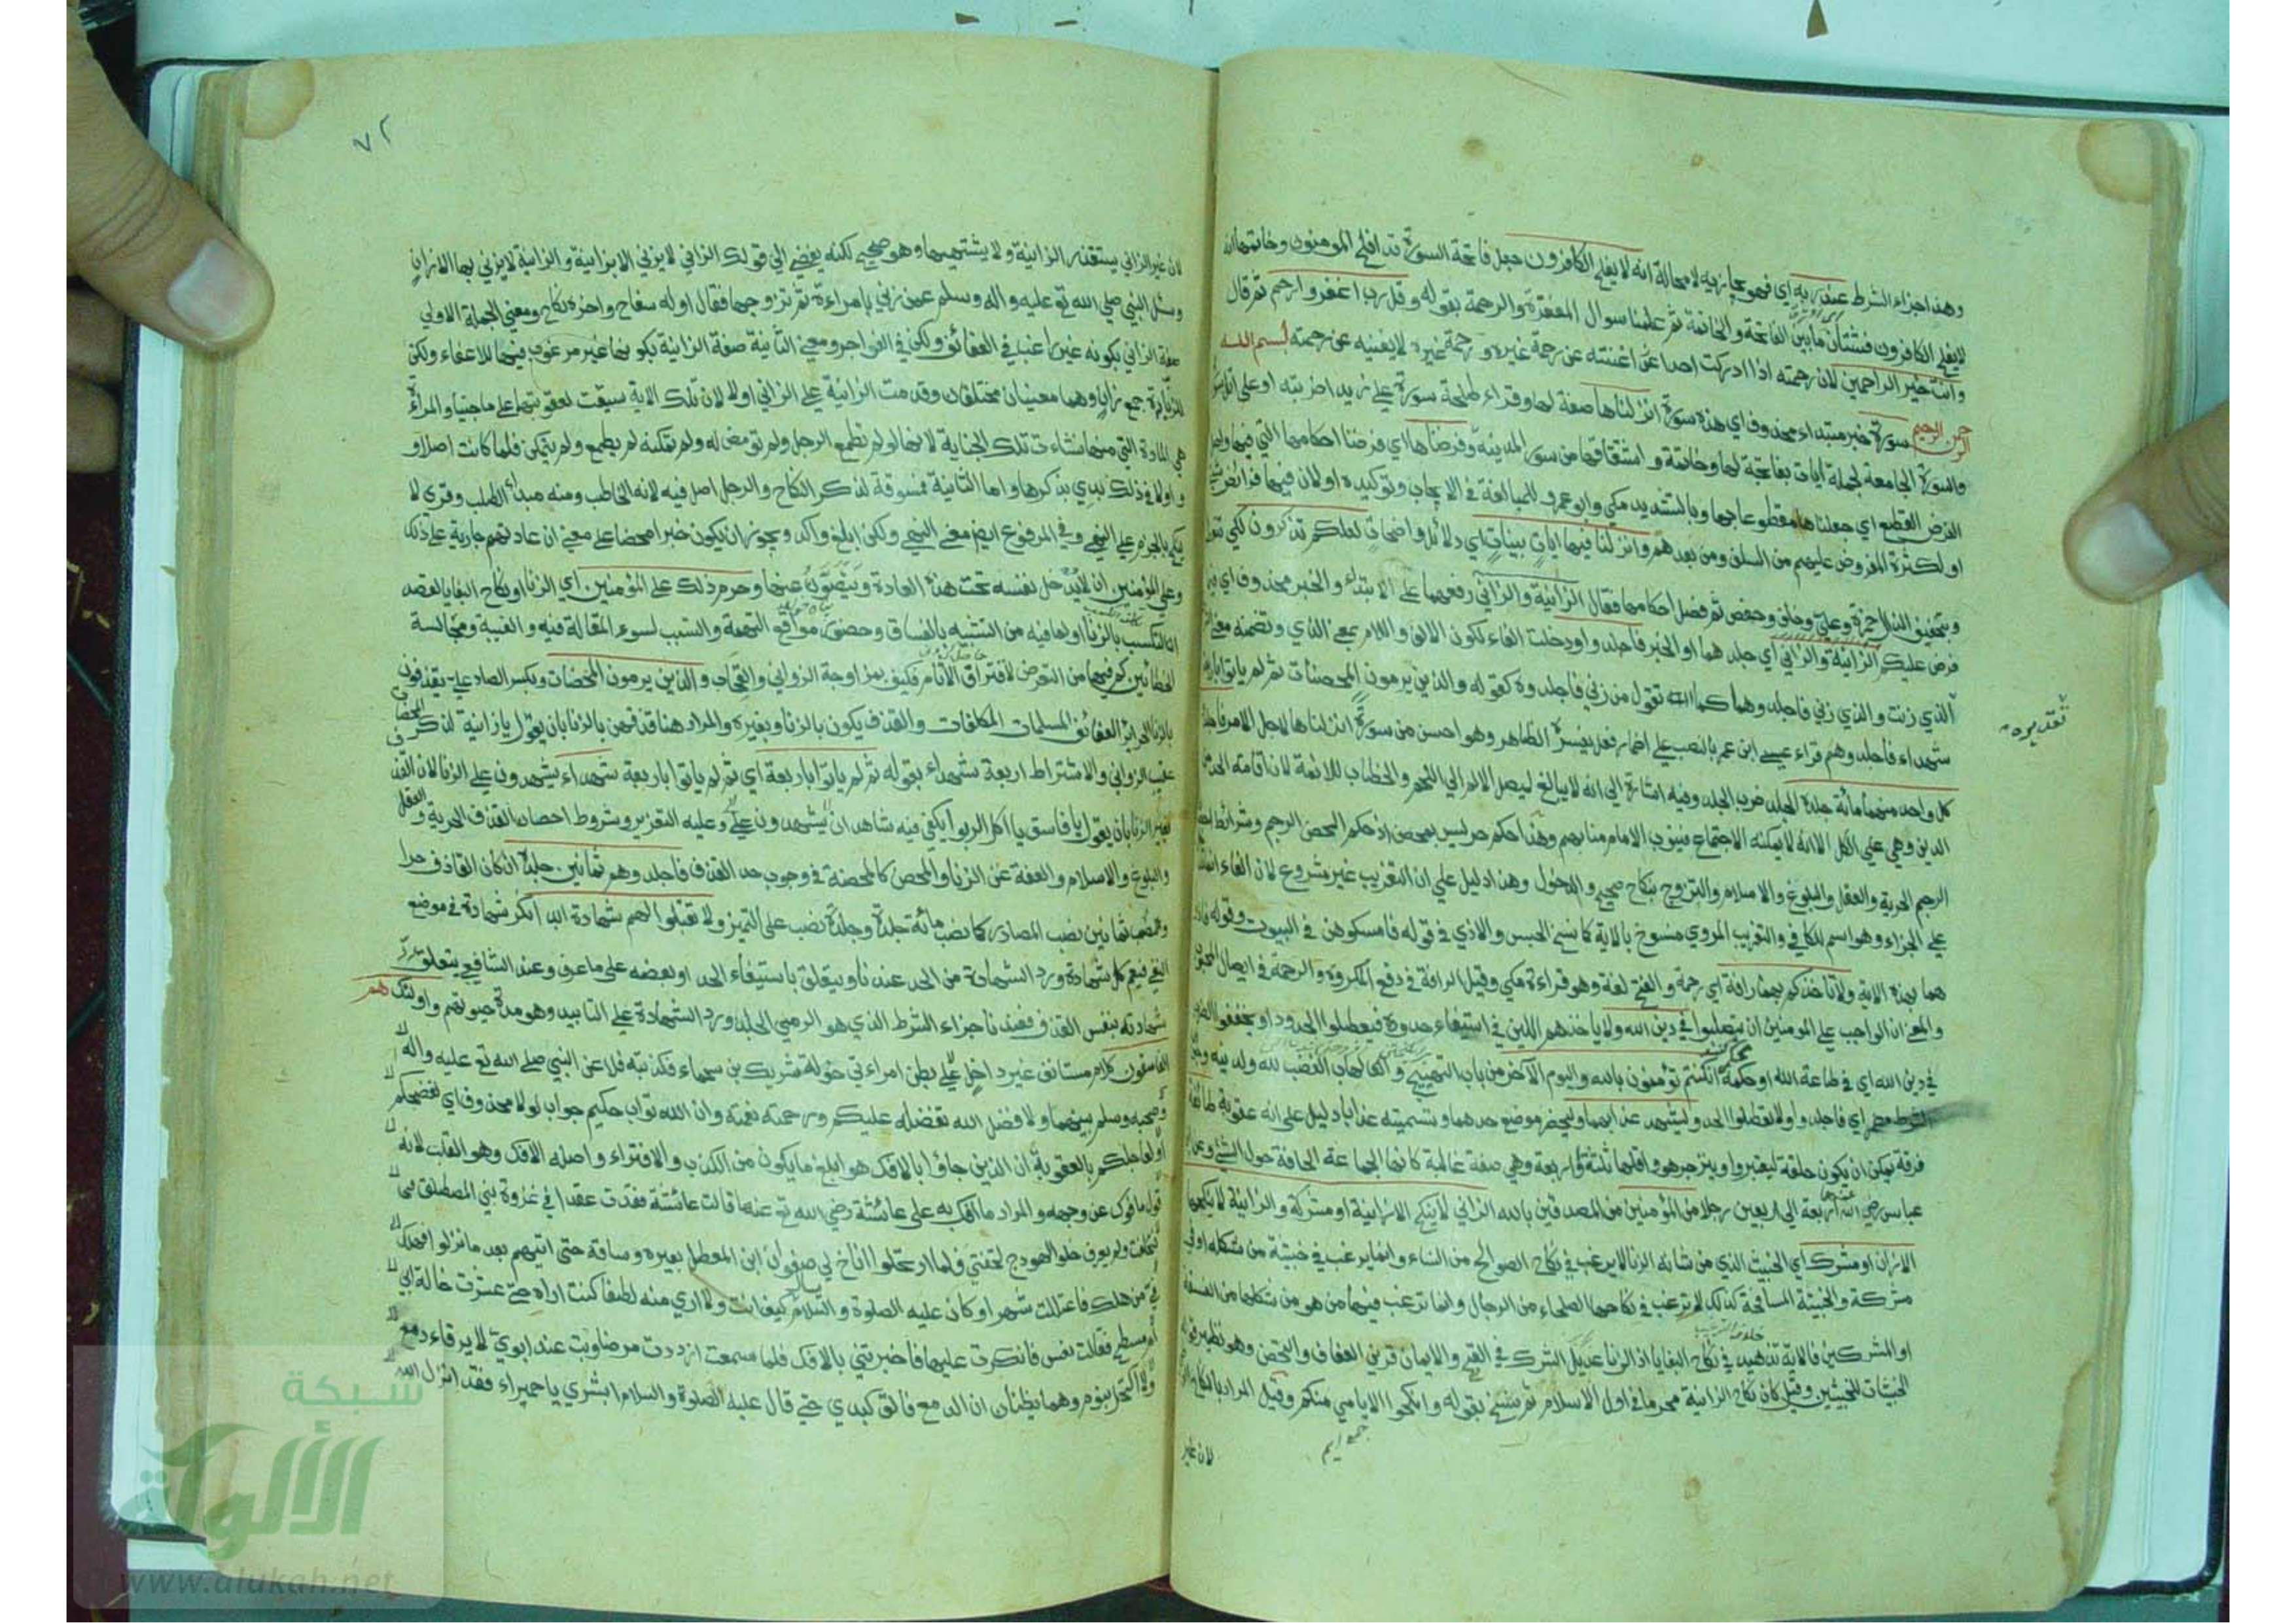 وهذا جزاء الشرط عند ربه اي فهو يجازيه لا محالة انه لا يفلح الكافرون جعل فاتحة السورة قد افلح المومنون وخاتمتها انه
لا يفلح الكافرون فشتان ما بين الفاتحة والخاتمة ثم علمنا سوال المغفرة والرحمة بقوله وقل رب اغفر وارحم ثم قال
وانت خير الراحمين لان رحمته اذا ادركت احدا اغنته عن رحمة غيره ورحمة غيره لا يغنيه عن رحمته بسم الله
الرحمن الرحيم سورة خبر مبتداء محذوف اي هذه سورة انزلناها صفة لها وقراء طلحة سورة على زيدا ضربته او على اتل سورة
والسورة الجامعة لجملة ايات بفاتحة لها وخاتمة واشتقاقها من سور المدينة وفرضناها اي فرضنا احكامها التي فيها واصل
الفرض القطع اي جعلناها مقطوعا بها وبالتشديد مكي وابو عمرو للمبالغة في الايجاب وتوكيده او لان فيها فرائض شتى
او لكثرة المفروض عليهم من السلف ومن بعدهم وانزلنا فيها ايات بينات اي دلائل واضحات لعلكم تذكرون لكي تتعظوا
وبتخفيف الذال حمزة وعلي وخلف وحفص ثم فصل احكامها فقال الزانية والزاني رفعهما على الابتداء والخبر محذوف اي فيما
فرض عليكم الزانية والزاني اي جلدهما او الخبر فاجلدوا ودخلت الفاء لكون الالف واللام بمعنى الذي وتضمنه معنى الشرط
الذي زنت والذي زنى فاجلدوهما كما تقول من زنى فاجلدوه كقوله والذين يرمون المحصنات ثم لم ياتوا باربعة
تقديره
شهداء فاجلدوهم قراء عيسى ابن عمر بالنصب على اضمار فعل يفسره الظاهر وهو احسن من سورة انزلناها لاجل الامر فاجلدوا
كل واحد منهما مائة جلدة الجلد ضرب الجلد وفيه اشارة الى انه لا يبالغ ليصل الالم الى اللحم والخطاب للائمة لان اقامة الحد من
الدين وهي على الكل الا انه لا يمكنه الاجتماع فينوب الامام منابهم وهذا حكم حر ليس بمحصن اذ حكم المحصن الرجم وشرائط احصان
الرجم الحرية والعقل والبلوغ والاسلام والتزوج بنكاح صحيح والدخول وهذا دليل على ان التغريب غير مشروع لان الفاء
على الجزاء وهو اسم للكافي والتغريب المروي منسوخ بالاية كما نسخ الحبس والاذي في قوله فامسكوهن في البيوت وقوله
هما بهذه الاية ولا تاخذكم بهما رافة اي رحمة والفتح لغة وهو قراءة مكي وقيل الرافة في دفع المكروه والرحمة في ايصال المحبوب
والمعنى ان الواجب على المومنين ان يتصلبوا في دين الله ولا ياخذهم اللين في استيفاء حدوده فيعطلوا الحدود او يخففوا الضرب
في دين الله اي في طاعة الله او حكمه ان كنتم تؤمنون بالله واليوم الآخر من باب التهييج والهاب الغضب لله ولدينه
الشرط اي فاجلدوا ولا تعطلوا الحد وليشهد عذابهما وليحضر موضع حدهما وتسميته عذابا دليل على انه عقوبة طائفة
فرقة يمكن ان يكون حلقة ليعتبروا وينزجر هو واقلها ثلثة او اربعة وهي صفة غالبة كانها الجماعة الحافة حول الشئ وعن
عباس رضي الله عنهما اربعة الى اربعين رجلا من المؤمنين من المصدقين بالله الزاني لا ينكح الا زانية او مشركة والزانية لا ينكحها
الا زان او مشرك اي الخبيث الذي من شانه الزنا لا يرغب في نكاح الصوالح من النساء وانما يرغب في خبيثة من شكله او في
مشركة والخبيثة المسافحة كذلك لا ترغب في نكاحها الصلحاء من الرجال وانما ترغب فيها من هو من شكلها من الفسقة
او المشركين فالاية تزهيد في نكاح البغايا اذ الزنا عديل الشرك في القبح والايمان قرين العفاف والتحصن وهو نظير قوله
الخبيثات للخبيثين وقيل كان نكاح الزانية محرما في اول الاسلام ثم نسخ بقوله وانكحوا الايامى منكم وقيل المراد بالنكاح
جمع ايم
لان غير
٧٢
لان غير الزاني يستقذر الزانية ولا يشتهيها وهو صحيح لكنه يفضي الى قولك الزاني لا يزني الا بزانية والزانية لا يزني بها الا زان
وسئل النبي صلى الله تع عليه واله وسلم عمن زنى بامراءة ثم تزوجها فقال اوله سفاح واخره نكاح ومعنى الجملة الاولى
صفة الزاني بكونه غير راغب في العفائف ولكن في الفواجر ومعنى الثانية صفة الزانية بكونها غير مرغوب فيها للاعفاء ولكن
للزناة جمع زان وهما معنيان مختلفان وقدمت الزانية على الزاني اولا لان تلك الاية سيقت لعقوبتهما على ما جنيا والمراة
هي المادة التي منها نشاءت تلك الجناية لانها لو لم تطمع الرجل ولم تومض له ولم تمكنه لم يطمع ولم يتمكن فلما كانت اصلا و
اولا في ذلك بدي بذكرها واما الثانية فمسوقة لذكر النكاح والرجل اصل فيه لانه الخاطب ومنه مبداء الطلب وقرى لا
ينكح بالجزم على النهي وفي المرفوع ايضا معنى النهي ولكن ابلغ واكد ويجوز ان يكون خبرا محضا على معنى ان عادتهم جارية على ذلك
وعلى المؤمنين ان لا يدخل نفسه تحت هذه العادة ويتصون عنها وحرم ذلك على المؤمنين اي الزنا او نكاح البغايا لقصد
التكسب بالزنا او لما فيه من التشبيه بالفساق وحضور مواقع التهمة والتسبب لسوء المقالة فيه والغيبة ومجالسة
الخطائين كم فيها من التعرض لاقتراف الآثام فكيف بمزاوجة الزواني والقحاب والذين يرمون المحصنات وبكسر الصاد علي يقذفون
بالزنا الحرائر العفائف المسلمات المكلفات والقذف يكون بالزنا وبغيره والمراد هنا قذفهن بالزنا بان يقول يا زانية لذكر المحصنات
عقيب الزواني والاشتراط اربعة شهداء بقوله ثم لم ياتوا باربعة اي ثم لم ياتوا باربعة شهداء يشهدون على الزنا لان القذف
بغير الزنا بان يقول يا فاسق يا اكل الربوا يكفي فيه شاهدان يشهدون وعليه التعزير وشروط احصان القذف الحرية والعقل
والبلوغ والاسلام والعفة عن الزنا والمحصن كالمحصنة في وجوب حد القذف فاجلدوهم ثمانين جلدة ان كان القاذف حرا
ونصب ثمانين نصب المصادر كما نصب مائة جلدة وجلدة نصب على التميز ولا تقبلوا لهم شهادة ابدا نكر شهادة في موضع
النفي فيعم كل شهادة ورد الشهادة من الحد عندنا ويتعلق باستيفاء الحد او بعضه على ما عرف وعند الشافعي يتعلق رد
شهادته بنفس القذف فعندنا جزاء الشرط الذي هو الرمي الجلد ورد الشهادة على التابيد وهو مدة حيوتهم واولئك هم
الفاسقون كلام مستانف غير داخل على بطن امراءتي خولة شريك بن سحماء فكذبته فلاعن النبي صلى الله تع عليه واله
وصحبه وسلم بينهما ولا فضل الله تفضله عليكم ورحمته نعمته وان الله تواب حكيم جواب لولا محذوف اي لفضحكم
او لعاجلكم بالعقوبة ان الذين جاؤا بالافك هو ابلغ ما يكون من الكذب والافتراء واصله الافك وهو القلب لانه
قول مافوك عن وجهه والمراد ما افك به على عائشة رضي الله تع عنها قالت عائشة فقدت عقدا في غزوة بني المصطلق
فتخلفت ولم يعرف خلو الهودج لخفتي فلما ارتحلوا اناخ لي صفوان ابن المعطل بعيره وساقه حتى اتيهم بعد ما نزلوا فهلك
في من هلك فاعتللت شهرا وكان عليه الصلوة والسلام يسال كيف انت ولا ارى منه لطفا كنت اراه حتى عثرت خالة ابي
ام مسطح فقالت تعس فانكرت عليها فاخبرتني بالافك فلما سمعت ازددت مرضا وبت عند ابوي لا يرقاء دمع
ولا اكتحل بنوم وهما يظنان ان الدمع فالق كبدي حتى قال عليه الصلوة والسلام ابشري يا حميراء فقد انزل الله
شبكة
الألوكة
www.alukah.net